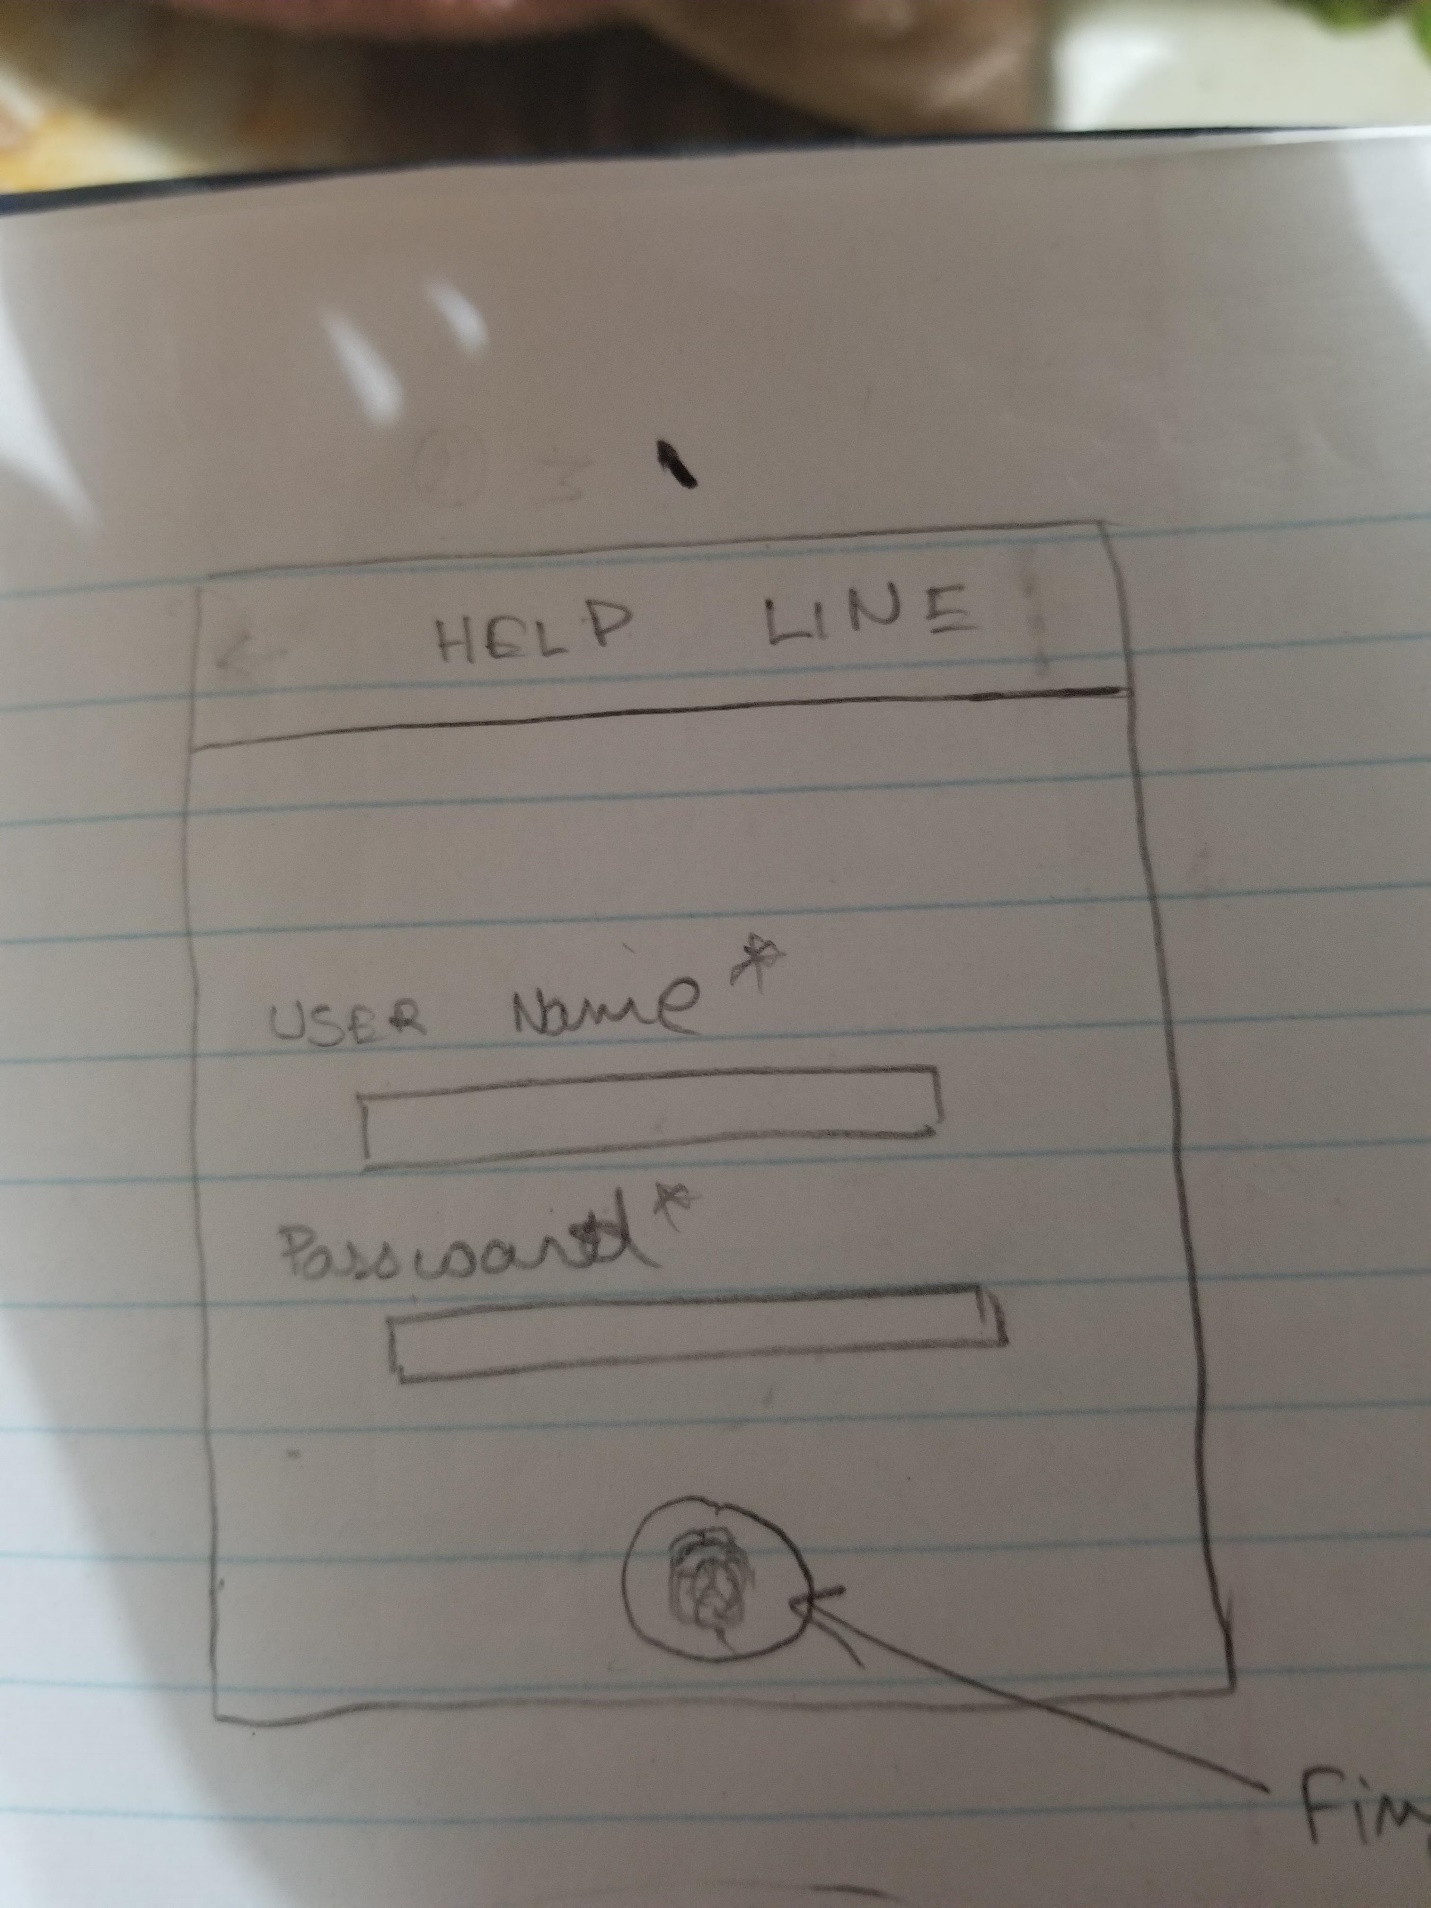 HELP LINE
USER Name*
Password*